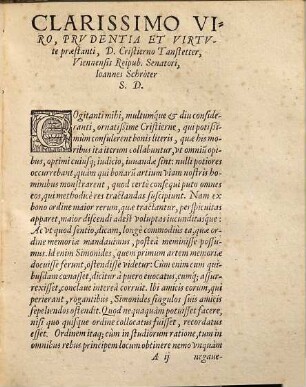 CLARISSIMO VI-
RO, PRVDENTIA ET VIRTV-
te præstanti, D. Cristierno Tanstetter,
Viennensis Reipub. Senatori,
Ioannes Schröter
S. D.
COgitanti mihi, multumque & diu conside-
ranti, ornatissime Cristierne, qui potissi-
mùm consulerent bonis literis, quæ his mo-
ribus ita iterum collabuntur, ut omniũ ope,
optimi cuiusque iudicio, iuuandæ sint: nulli potiores
occurrebant, quàm qui bonarũ artium uiam nostris ho-
minibus monstrarent, quod certè consequi puto omnes
eos, qui methodicè res tractandas suscipiunt. Nam ex
bono ordine maior rerum, quæ tractantur, perspicuitas
apparet, maior discendi adest uoluptas iucunditasque:
Ac ut quod sentio, dicam, longè commodius ea, quæ or-
dine memoriæ mandauimus, posteà meminisse possu-
mus. Id enim Simonides, quem primum artem memoriæ
docuisse ferunt, ostendisse uidetur: Cùm enim cum qui-
busdam cœnasset, diciturque à puero euocatus, cumque assur-
rexisset, conclaue intereà corruit. Ibi amicis eorum, qui
perierant, rogantibus, Simonides singulos suis amicis
sepeliundos ostendit. Quod nequaquàm potuisset facere,
nisi quo quisque ordine collocatus fuisset, recordatus
esset. Ordinem itaque cùm in studiorum ratione, tum in
omnibus rebus principem locum obtinere nemo unquàm
A ij
negaue-